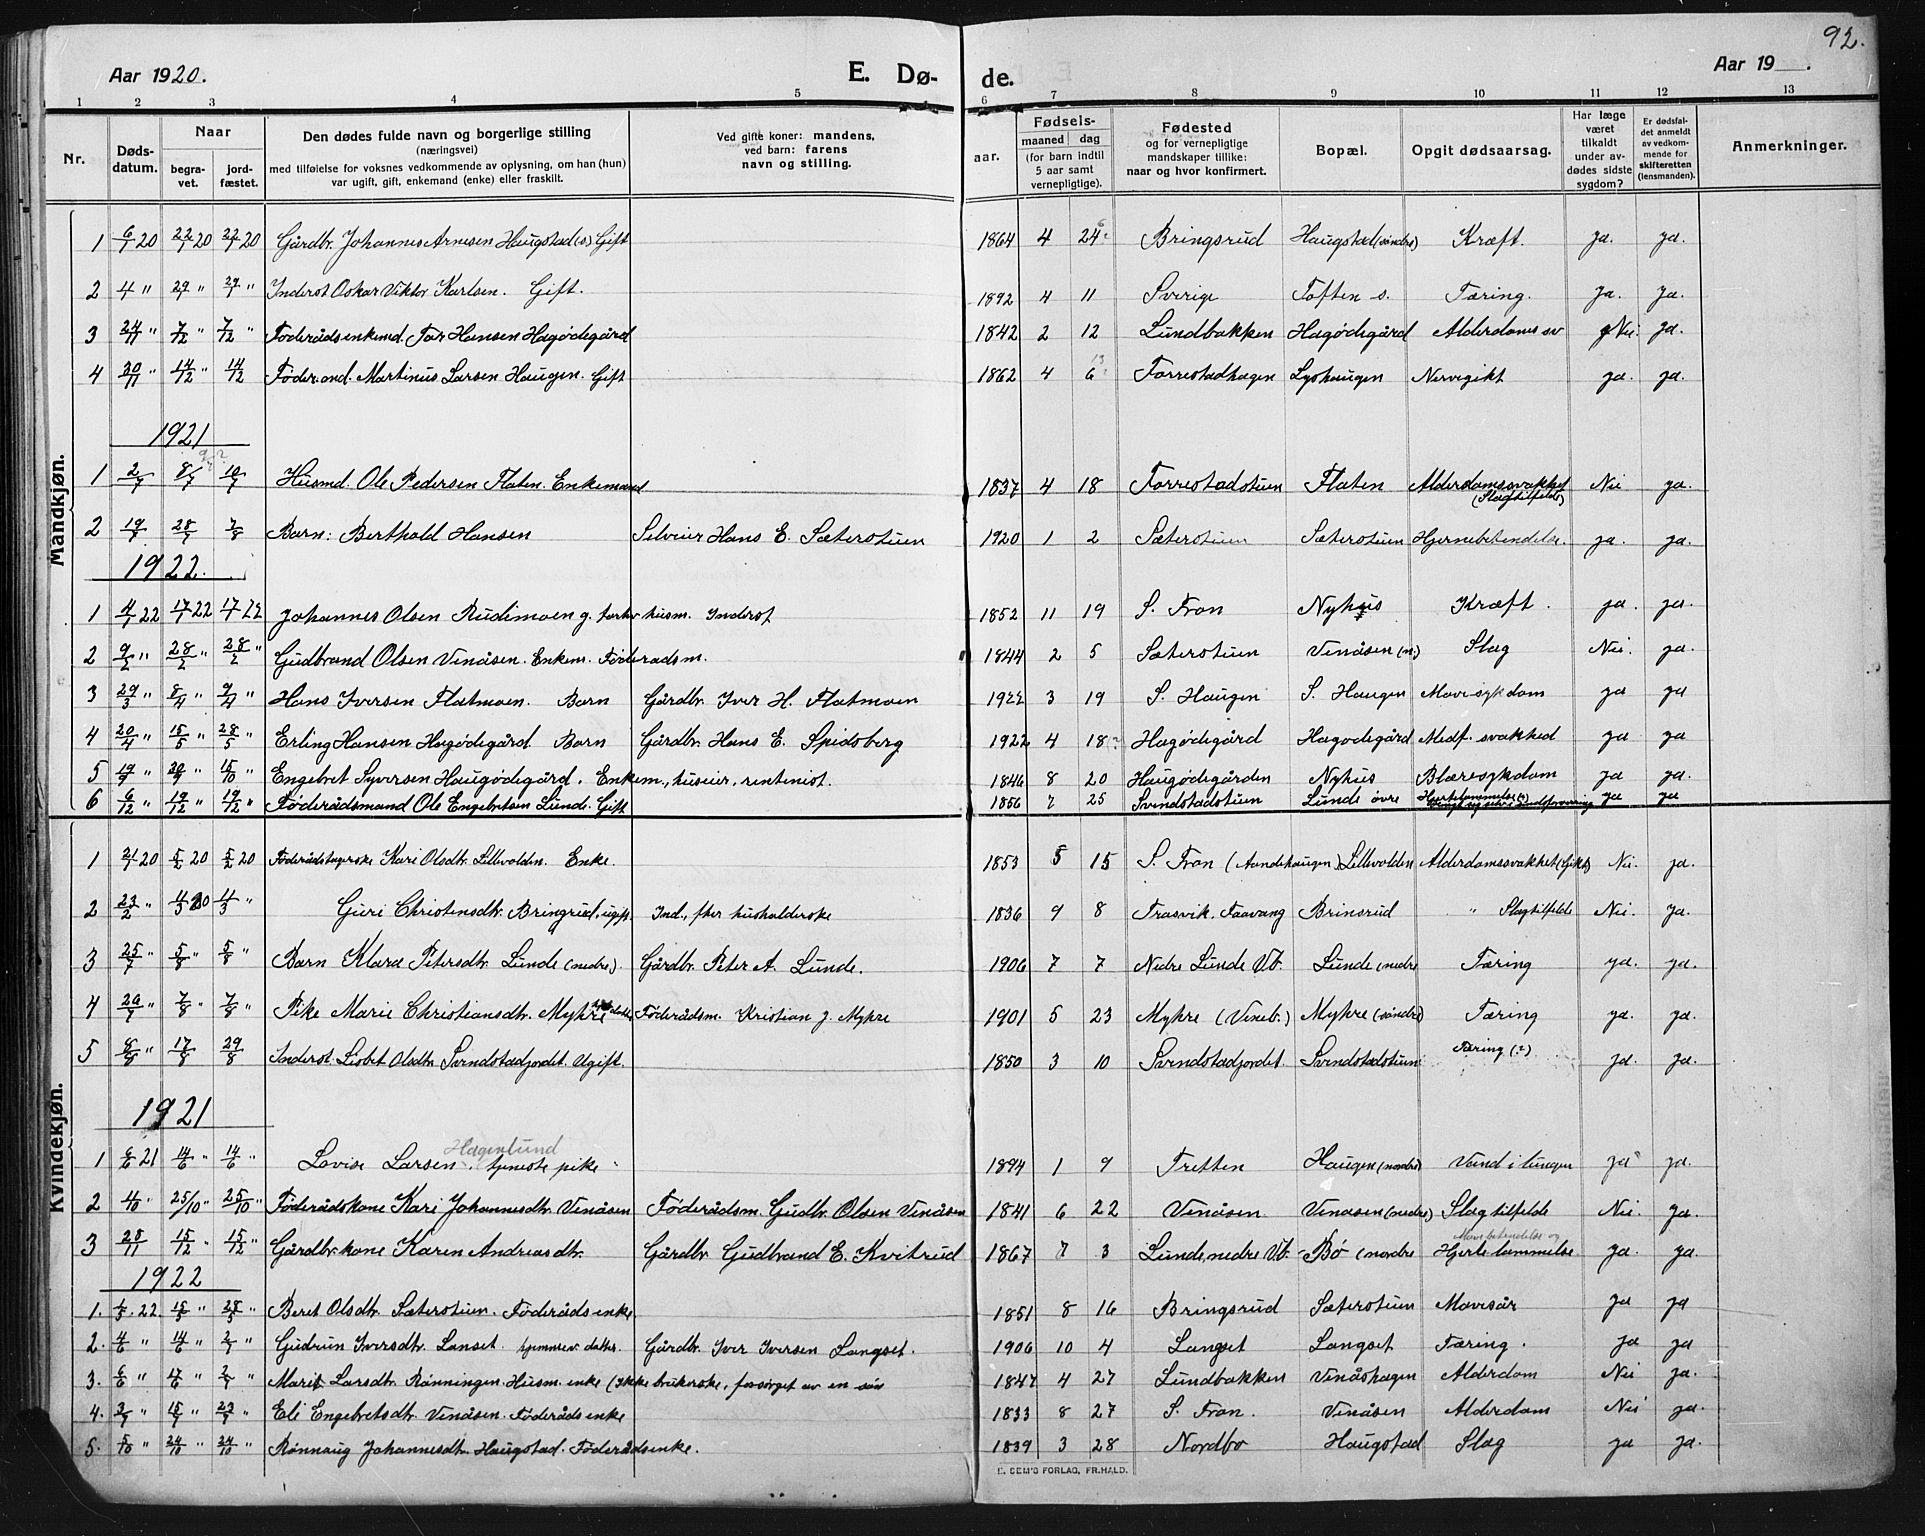 92.
Aar 1920. E. Dø- de. Aar 19 .
1 2 3 4 5 6 7 8 9 10 11 12 13
Nr. Døds-datum. Naar begra-vet. jord-fæstet. Den dødes fulde navn og borgerlige stilling (næringsvei) med tilføielse for voksnes vedkommende av oplysning, om han (hun) var ugift, gift, enkemand (enke) eller fraskilt. Ved gifte koner: mandens, ved barn: farens navn og stilling. aar. Fødsels- maaned dag (for barn indtil 5 aar samt vernepligtige). Fødested og for vernepligtige mandskaper tillike: naar og hvor konfirmert. Bopæl. Opgit dødsaarsag. Har læge været tilkaldt under av-dødes sidste sygdom? Er dødsfal-det anmeldt av vedkom-mende for skifteretten (lensmanden). Anmerkninger.
Mandkjøn.
1 6/1 20 22/1 20 22/1 20 Gårdbr. Johannes Arnesen Haugstad (s) Gift 1864 4 24 Bringsrud Haugstad (søndre) Kræft. ja. ja.
2 4 " 29 " 29 " Inderst Oskar Viktor Karlsen. Gift. 1892 4 11 Sverige Toften s. Tæring. ja. ja.
3 24/11 " 7/12 " 7/12 " Føderådsenkemd. Tor Hansen Hagødegård 1842 2 12 Lundbakken Hagødegård Alderdoms sv Nei. ja.
4 30/11 " 14/12 " 14/12 Føder.and. Martinus Larsen Haugen. Gift 1862 4 6 13 Forrestadhagen Lyshaugen Nervegikt ja. ja.
1921
1 2/7 8/7 10/7 Husmd. Ole Pedersen Flaten. Enkemand 1837 4 18 Forrestadstuen Flaten Alderdomssvakhet (Slagtilfelde) Nei ja.
2 19/7 28/7 7/8 Barn: Berthold Hansen Selveier Hans E. Sæterstuen 1920 1 2 Sæterstuen Sæterstuen Hjernebetendelse. ja. ja.
1922.
1 4/1 22 17/1 22 17/1 22 Johannes Olsen Rudimoen g. forhv husm. Inderst 1852 11 19 S. Fron Nyhus Kræft. ja. ja.
2 9/2 " 28/2 " 28/2 " Gudbrand Olsen Vinåsen. Enkem. Føderadsm. 1844 2 5 Sæterstuen Vinåsen (n.) Slag Nei. ja.
3 29/3 " 8/4 " 9/4 " Hans Iversen Flatmoen. Barn Gårdbr. Iver H. Flatmoen 1922 3 19 S. Haugen S. Haugen Mavesykdom ja ja
4 20/4 " 15/5 " 28/5 " Erling Hansen Hagødegård Barn Gårdbr. Hans E. Spidsberg 1922 4 18 Hagødegård Hagødegård Medf. svakhed ja ja
5 19/9 " 29/9 " 15/10 " Engebret Syversen Haugødegård. Enkem., huseier, rentenist. 1846 8 20 Haugødegården Nyhus Blæresykdom ja ja
6 6/12 " 19/12 " 19/12 " Føderådsmand Ole Engebretsen Lunde. Gift 1856 7 25 Svendstadstuen Lunde øvre Hjertelammelse ja ja
Kvindekjøn.
1 21/1 20 5/2 20 5/2 20 Føderådstagerske Kari Olsdtr. Lillevolden. Enke. 1853 5 15 S. Fron (Aandehaugen) Lillevolden Alderdomssvakhet (Gikt) Nei. ja.
2 23/2 " 4/3 20 4/3 " Guri Christensdtr. Bringrud, ugift. Ind., fher husholderske 1836 9 8 Trasvik. Faavang Brinsrud " Slagtilfelde Nei. ja.
3 25/7 " 5/8 " 5/8 " Barn Klara Petersdtr. Lunde (nedre). Gårdbr. Peter A. Lunde. 1906 7 7 Nedre Lunde Vb. Lunde (nedre Tæring ja. ja.
4 26/7 " 7/8 " 7/8 " Pike Marie Christiansdtr. Mykre datter Føderådsm. Kristian J. Mykre 1901 5 23 Mykre (Vineb.) Mykre (søndre) Tæring ja. ja.
5 8/8 " 17/8 29/8 Inderst. Lisbet Olsdtr. Svendstadjordet. Ugift. 1850 3 10 Svendstadjordet. Svendstadstuen Tæring (?) ja. ja.
1921
1 6/6 21 14/6 " 14/6 " Lovise Larsen Hagenlund. tjeneste pike 1894 1 9 Tretten Haugen (nordre) Vand i lungen ja ja.
2 4/10 " 25/10 " 25/10 " Føderådskone Kari Johannesdtr. Vinåsen Føderådsm. Gudbr. Olsen Vinåsen 1841 6 22 Vinåsen. Vinåsen (nedre) Slagtilfelde Nei. ja.
3 28/11 15/12 " 15/12 " Gårdbr.kone Karen Andreasdtr. Gårdbr. Gudbrand E. Kvitrud 1867 7 3 Lunde, nedre Vb. Bø (nordre Mavebetendelse og Hjertelammelse ja. ja.
1922
1. 1/5. 22 15/5 " 28/5 " Beret Olsdtr. Sæterstuen. Føderåds enke. 1851 8 16 Bringsrud Sæterstuen Mavesår ja ja
2. 4/6 " 14/6 " 2/7 " Gudrun Iversdtr. Lanset. hjemmev. datter. Gårdbr. Iver Iversen Langset. 1906 10 4 Langset Langset Tæring. ja ja.
3. 6/6 " 17/6 " 2/7 " Marit Larsdtr. Rønningen. Husm. enke (Ikke brukerske, forsørget av en søn 1847 4 27 Lundbakken Vinåshagen Alderdom Nei ja.
4. 3/7 " 15/7 " 23/7 " Eli Engebretsdtr. Vinåsen. Føderåds enke 1833 8 27 S. Fron. Vinåsen Alderdom Nei ja.
5. 5/10 " 24/10 " 24/10 " Rønnaug Johannesdtr. Haugstad. Føderådsenke. 1839 3 28 Nordbo Haugstad Slag ja ja.
E. SEM'S FORLAG, FR.HALD.